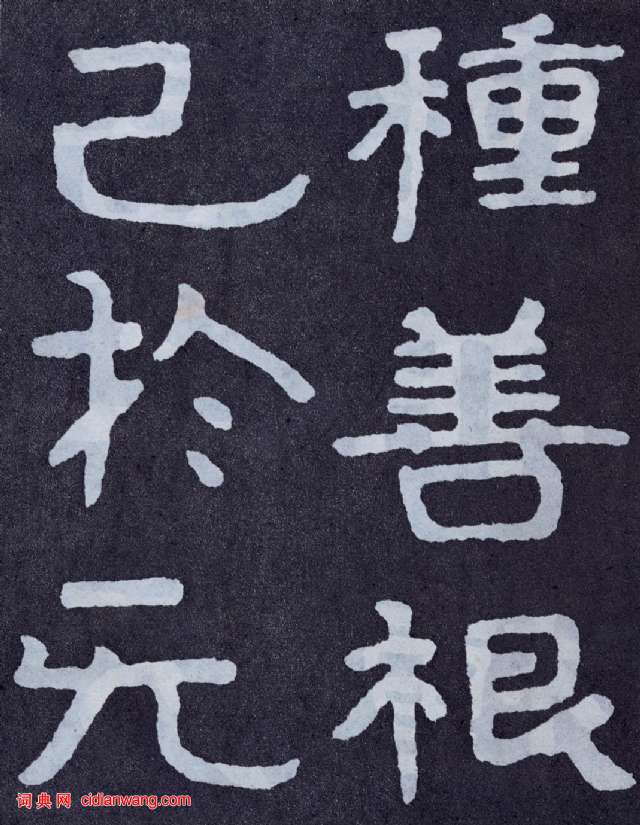 種善根
已於元
词典网 cidianwang.com